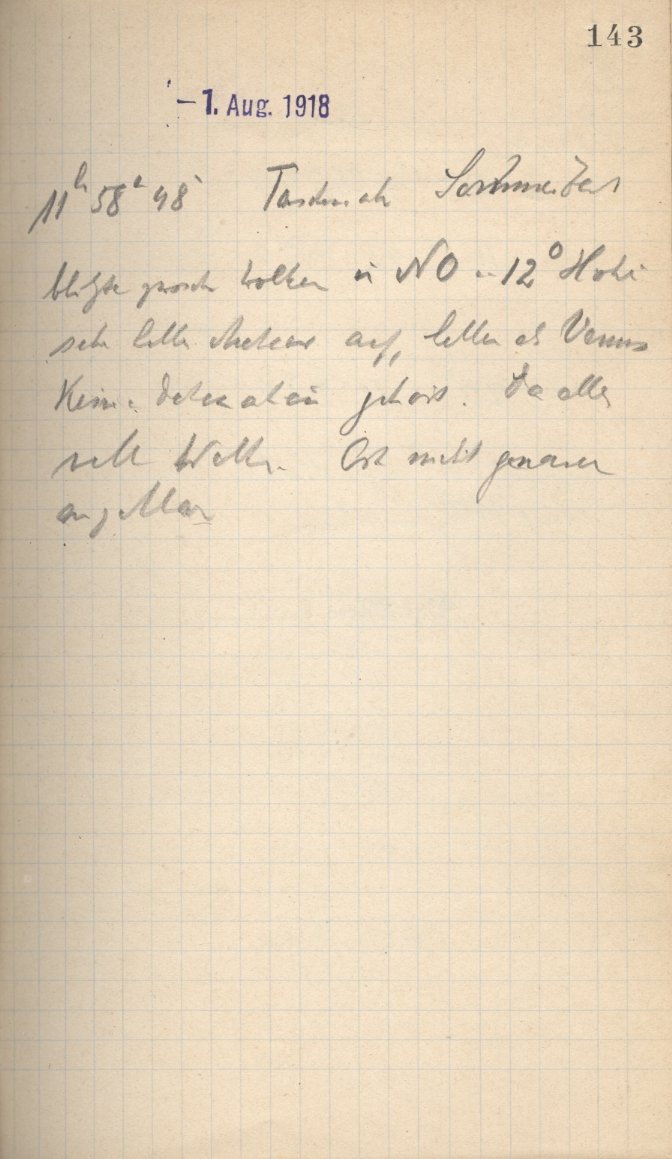 143
- 1. Aug. 1918
11h 58m 48s Taschenuhr Sommerzeit
blitzte zwischen Wolken in NO in 12° Höhe
sehr helles Meteor auf, heller als Venus
Keine Detonation gehört. Da alles
voll Wolken Ort nicht genauer
angebbar